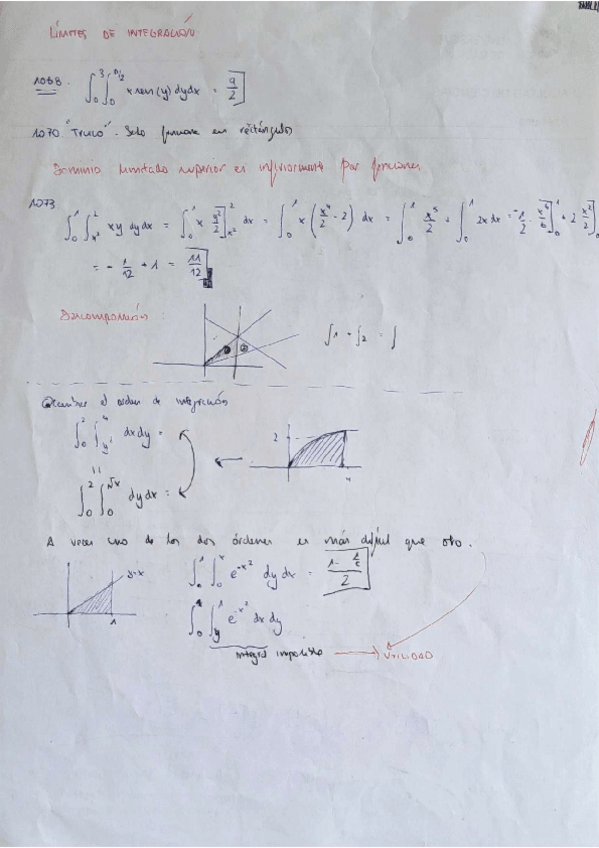 LÍMITES DE INTEGRACIÓN
1068. ∫₀³ ∫₀^{π/2} x sen(y) dy dx = 9/2
1070 "Truco". Solo funciona en rectángulos
Dominio limitado superior e inferiormente por funciones
1073
∫₀¹ ∫_{x²}² xy dy dx = ∫₀¹ x [y²/2]_{x²}² dx = ∫₀¹ x (x⁴/2 - 2) dx = ∫₀¹ x⁵/2 + ∫₀¹ 2x dx = -1/2 [x⁶/6]₀¹ + 2 [x²/2]₀¹
= -1/12 + 1 = 11/12
Descomposición:
1 2
∫1 + ∫2 = ∫
Cambiar el orden de integración
∫₀² ∫_{y²}⁴ dx dy =
2
4
∫₀² ∫₀^{√x} dy dx =
A veces uno de los dos órdenes es más difícil que otro.
y=x
1
∫₀¹ ∫₀^x e^{-x²} dy dx = (1 - 1/e)/2
∫₀¹ ∫_y¹ e^{-x²} dx dy
integral imposible → UTILIDAD